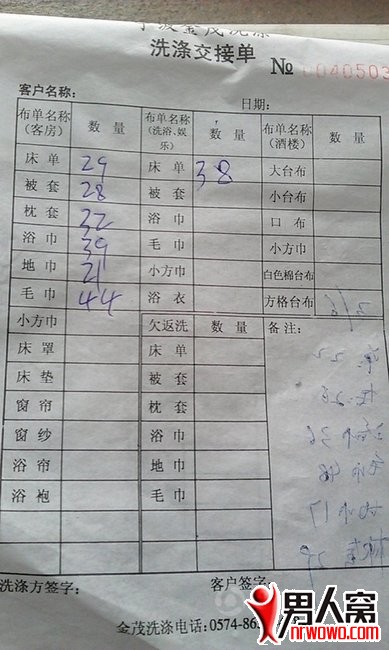 宁波金茂洗涤
洗涤交接单
№ 0040503
客户名称: 日期:
布单名称(客房) 数量 布单名称(洗浴、娱乐) 数量 布单名称(酒楼) 数量
床单 29 床单 38 大台布
被套 28 被套 小台布
枕套 32 浴巾 口布
浴巾 39 毛巾 小方巾
地巾 21 小方巾 白色棉台布
毛巾 44 浴衣 方格台布
小方巾 欠返洗 数量 备注:
床罩 床单
床垫 被套
窗帘 枕套
窗纱 浴巾
浴帘 地巾
浴袍 毛巾
洗涤方签字: 客户签字:
金茂洗涤电话:0574-863
男人窝
nrwowo.com